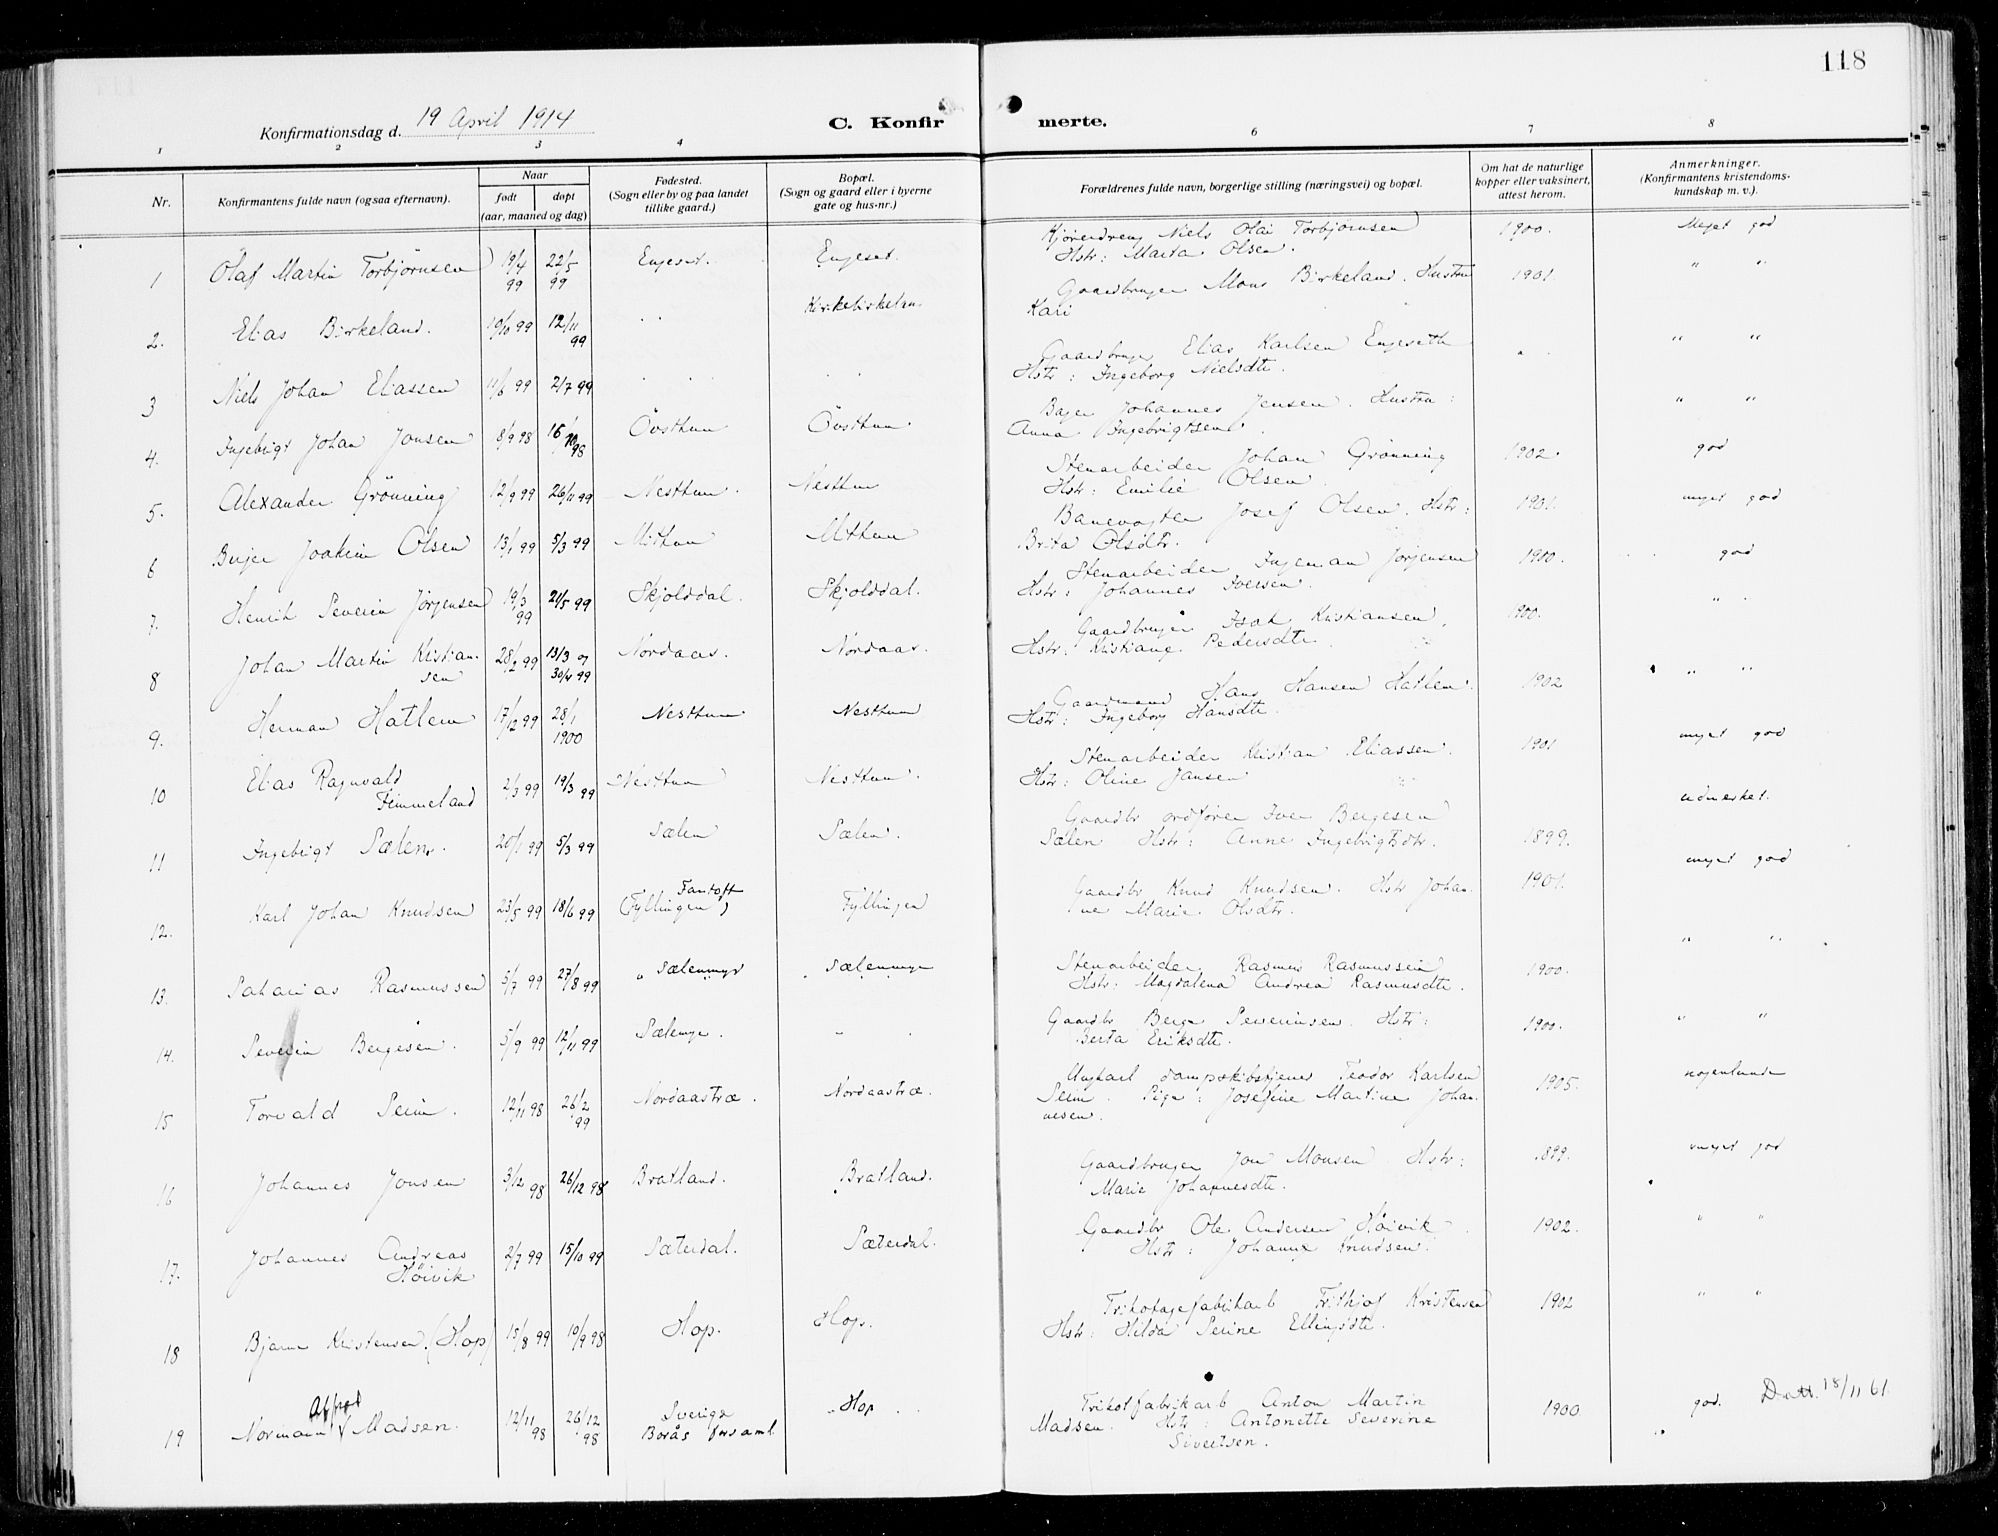 118
Konfirmationsdag d. 19 April 1914
C. Konfirmerte.
1 2 3 4 6 7 8
Nr.
Konfirmantens fulde navn (ogsaa efternavn).
Naar
født døpt
(aar, maaned og dag)
Fødested.
(Sogn eller by og paa landet
tillike gaard.)
Bopæl.
(Sogn og gaard eller i byerne
gate og hus-nr.)
Forældrenes fulde navn, borgerlige stilling (næringsvei) og bopæl.
Om hat de naturlige
kopper eller vaksinert,
attest herom.
Anmerkninger.
(Konfirmantens kristendoms-
kundskap m. v.).
1 Olaf Martin Torbjörnsen 19/4 99 22/5 99 Engeset. Engeset. Kjöredreng Niels Olai Torbjörnsen 1900. Meget god
Hstr: Marta Olsen.
2. Elias Birkeland. 19/10 99 12/11 99 " Kirkebirkelan. Gaardbruger Mons Birkeland. Hustru 1901. " "
Kari
3 Niels Johan Eliassen 11/6 99 2/7 99 " " " " Gaardbruger Elias Karlsen Engeseth " " "
Hstr: Ingeborg Nielsdtr.
4. Ingebrigt Johan Jensen 8/9 98 16/10 98 Övsttun Övsttun. Bager Johannes Jensen. Hustru: " "
Anna Ingebrigtsen.
5. Alexander Grönning 12/9 99 26/11 99 Nesttun. Nesttun Stenarbeider Johan Grönning 1902. god
Hstr: Emilie Olsen.
6 Birger Joakim Olsen 13/1 99 5/3 99 Mittun Mittun Banevogter Josef Olsen. Hstr: 1901. meget god
Brita Olsdtr.
7. Henrik Severin Jørgensen 19/3 99 21/5 99 Skjolddal. Skjolddal. Stenarbeider Ingeman Jørgensen 1900. god
Hstr: Johannes Iversen.
8 Johan Martin Kristian-
sen 28/2 99 13/3 og 30/4 99 Nordaas. Nordaas. Gaardbruger Isak Kristiansen. 1900. " "
Hstr: Kristiane Pedersdtr.
9. Herman Hatlem 17/12 99 28/1 1900 Nesttun Nesttun Gaardmand Hans Hansen Hatlem. 1902 " "
Hstr: Ingeborg Hansdtr.
10 Elias Ragnvald
Fimmeland 2/3 99 19/3 99 Nesttun Nesttun. Stenarbeider Kristian Eliassen. 1901 meget god
Hstr: Oline Jansen
11 Ingebrigt Sælen. 20/1 99 5/3 99 Sælen Sælen. Gaardbr ordförer Iver Bergesen udmerket.
Sælen Hstr: Anne Ingebrigtsdtr. 1899.
12. Karl Johan Knudsen 23/5 99 18/6 99 Fantoft
(Fyllingen) Fyllingen Gaardbr Knud Knudsen. Hstr Johan- 1901. meget god
ne Marie Olsdtr.
13. Sakarias Rasmussen 5/7 99 27/8 99 " Sælenmyr Sælenmyr Stenarbeider Rasmus Rasmussen 1900. " "
Hstr: Magdalena Andrea Rasmusdtr.
14. Severin Bergesen. 5/9 99 12/11 99 Sælemyr. " Gaardbr Berge Severinsen. Hstr: 1900. " "
Berta Eriksdtr.
15 Torvald Serin. 12/11 98 26/2 99 Nordaastræ. Nordaastræ. Ungkarl dampskibstjener Teodor Karlsen 1905. nogenlunde
Serin. Pige: Josefine Martine Johan-
nesen.
16 Johannes Jonsen 3/12 98 26/12 98 Bratland. Bratland. Gaardbruger Jon Monsen Hstr: 1899. meget god
Marie Johannesdtr.
17. Johannes Andreas
Høivik 2/7 99 15/10 99 Sæterdal. Sæterdal. Gaardbr Ole Andersen Høivik 1902. " "
Hstr: Johanne Knudsen.
18 Bjarne Kristensen. (Hop) 15/8 99 10/9 98 Hop. Hop. Trikotagefabrikarb Frithjof Kristensen 1902 " "
Hstr: Hilda Serine Ellingsdtr.
19 Normann Alfred Madsen. 12/11 98 26/12 98 Sverige
Borås forsaml Hop Trikotfabrikarb Anton Martin 1900. god. 18/11 61.
Madsen. Hstr: Antonette Severine
Sivertsen.